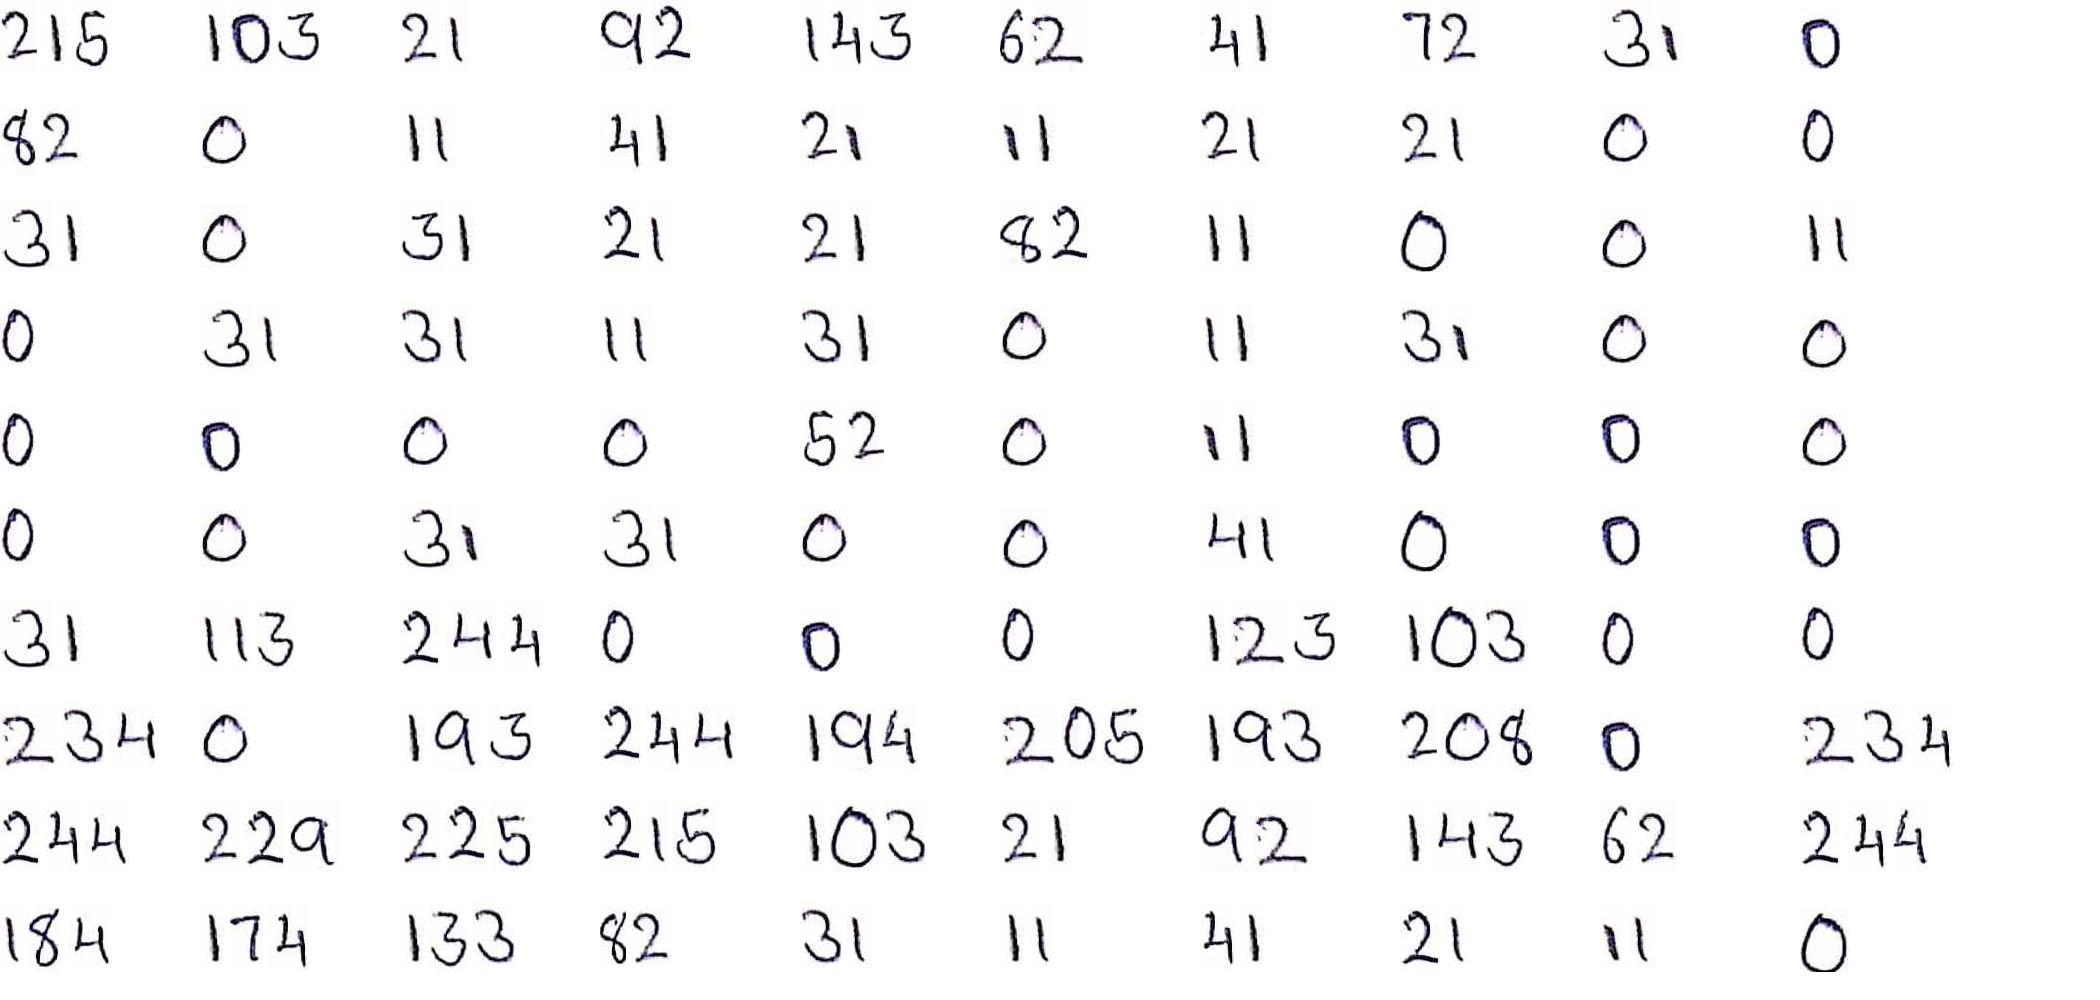 215 103 21 92 143 62 41 72 31 0
82 0 11 41 21 11 21 21 0 0
31 0 31 21 21 82 11 0 0 11
0 31 31 11 31 0 11 31 0 0
0 0 0 0 52 0 11 0 0 0
0 0 31 31 0 0 41 0 0 0
31 113 244 0 0 0 123 103 0 0
234 0 193 244 194 205 193 208 0 234
244 229 225 215 103 21 92 143 62 244
184 174 133 82 31 11 41 21 11 0